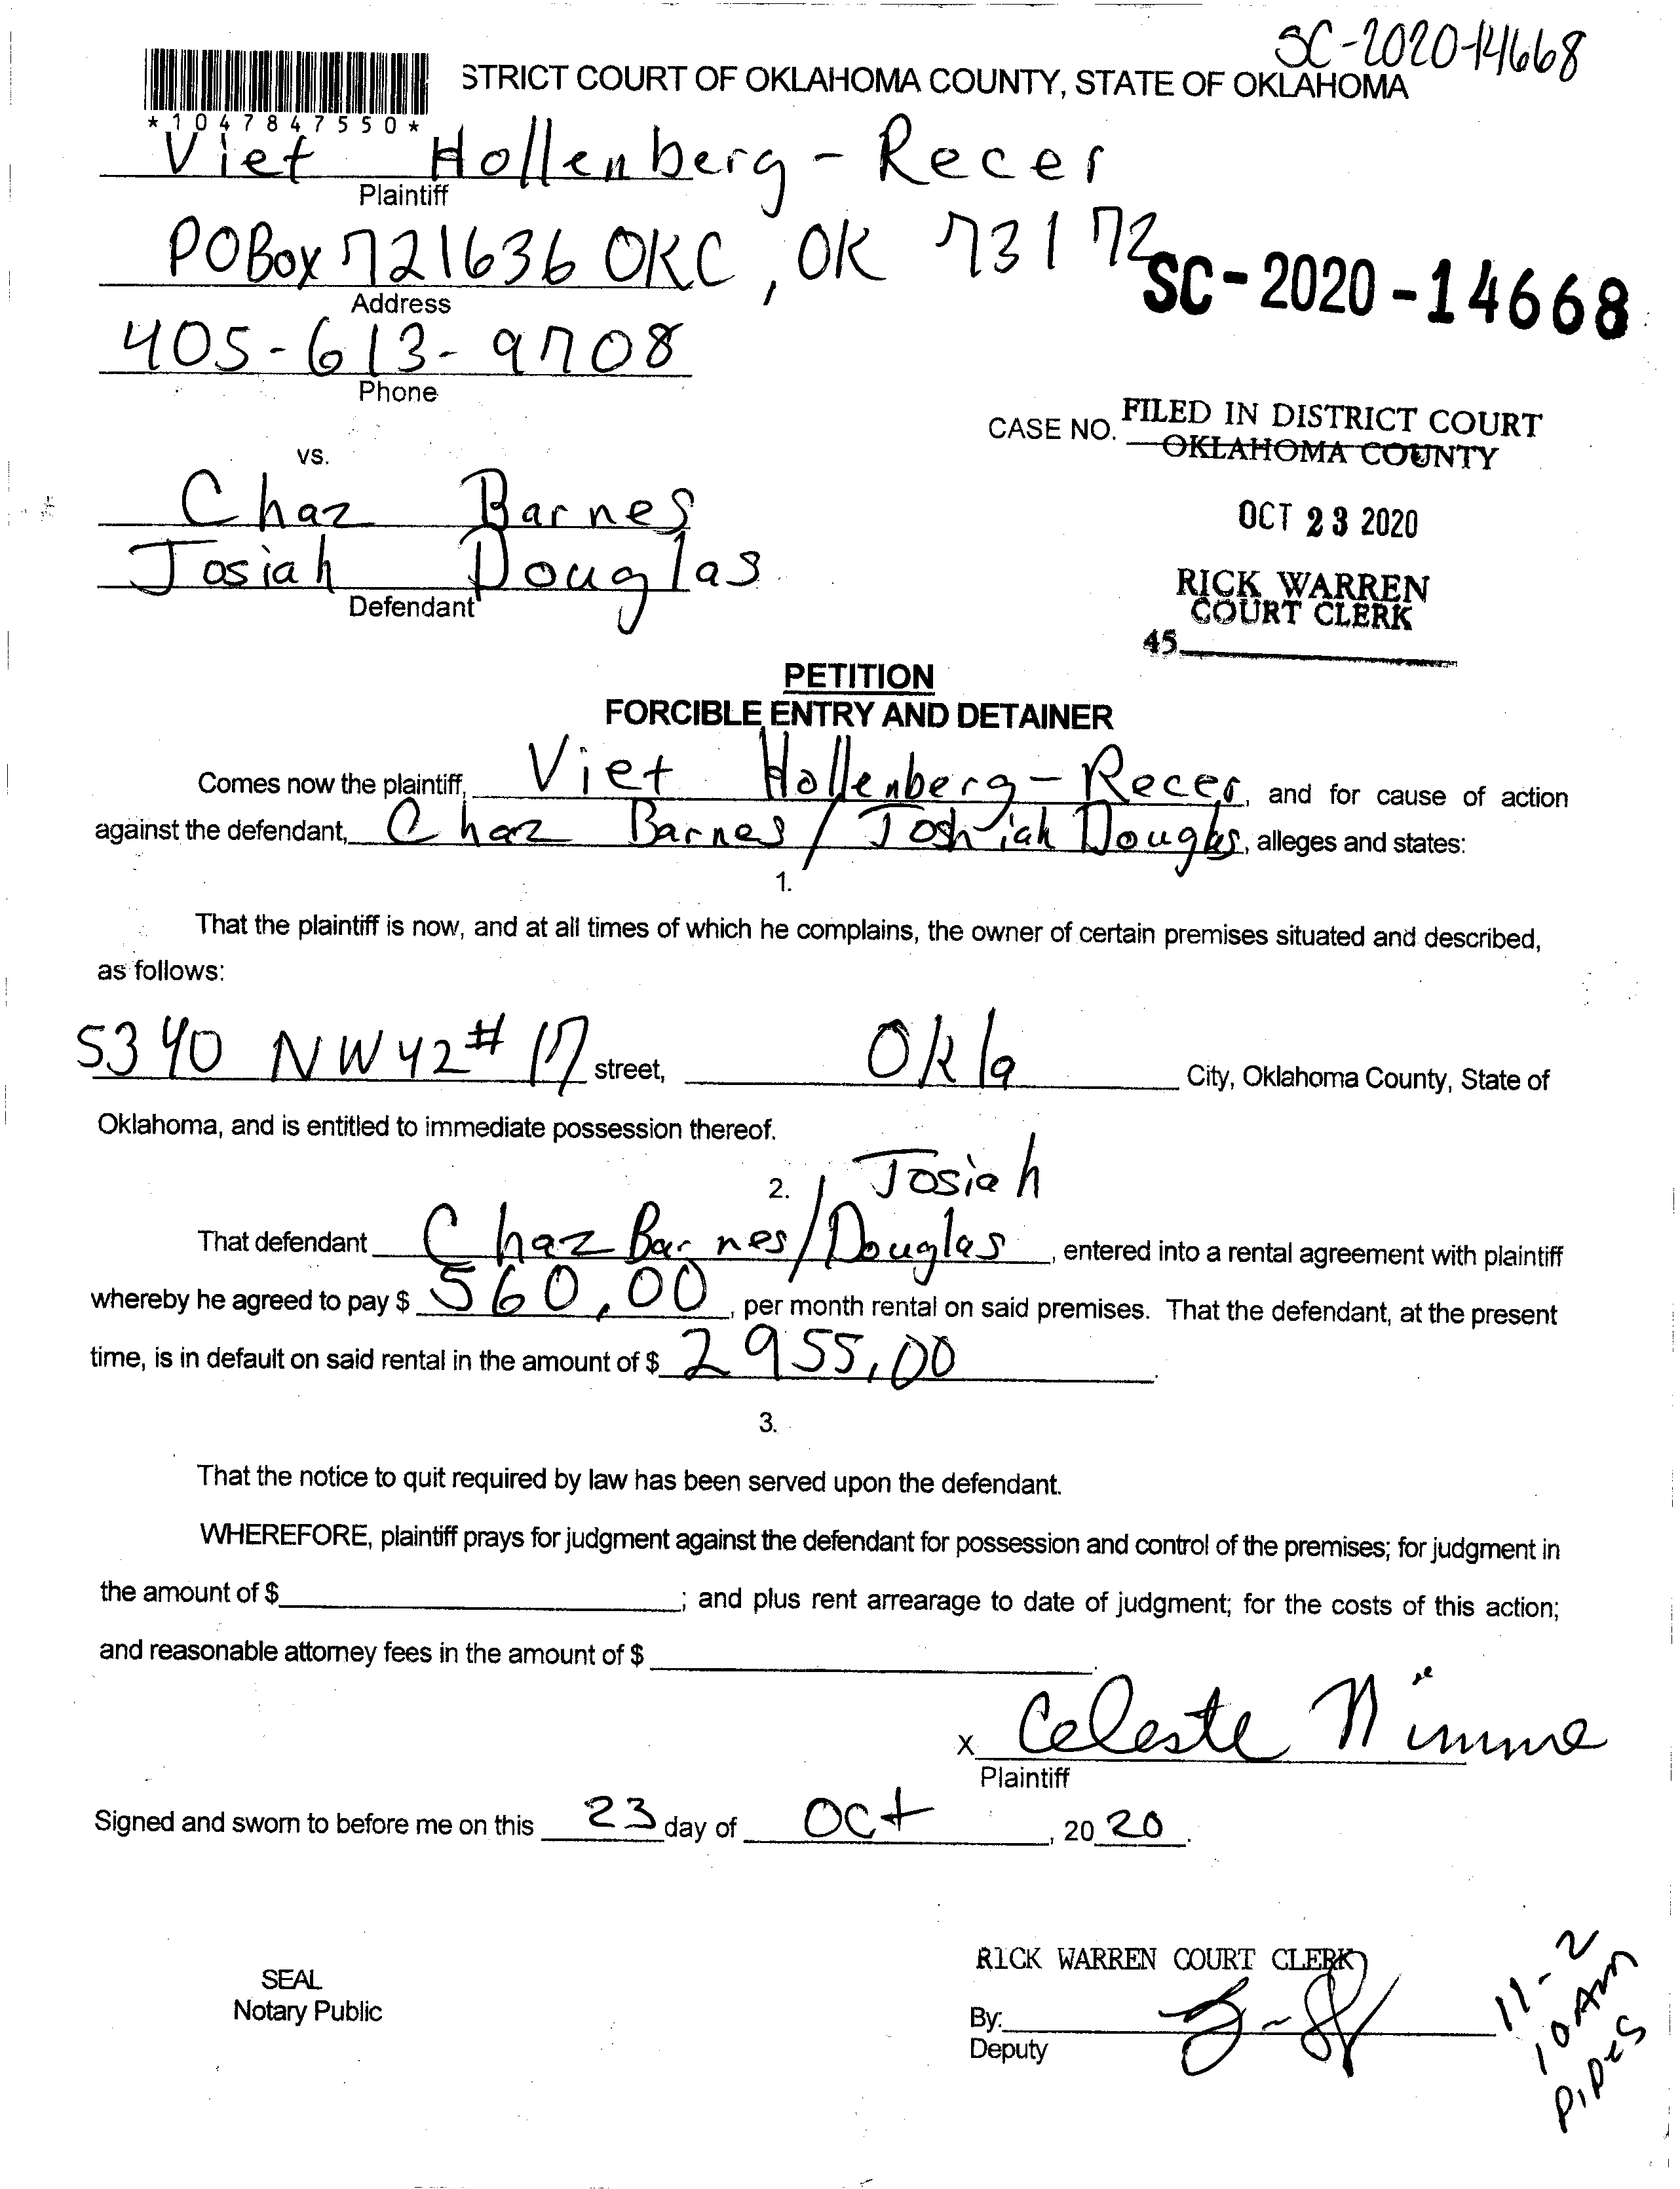 SC-2020-14668
STRICT COURT OF OKLAHOMA COUNTY, STATE OF OKLAHOMA
*1047847550*
Viet Hollenberg-Recer
Plaintiff
POBox 721636 OKC, OK 73172
Address
SC-2020-14668
405-613-9708
Phone
CASE NO.
FILED IN DISTRICT COURT
OKLAHOMA COUNTY
vs.
Chaz Barnes
OCT 23 2020
Josiah Douglas
Defendant
RICK WARREN
COURT CLERK
45
PETITION
FORCIBLE ENTRY AND DETAINER
Comes now the plaintiff, Viet Hollenberg-Recer, and for cause of action
against the defendant, Chaz Barnes / Joshiah Douglas, alleges and states:
1.
That the plaintiff is now, and at all times of which he complains, the owner of certain premises situated and described,
as follows:
5340 NW 42 # 17 street, Okla City, Oklahoma County, State of
Oklahoma, and is entitled to immediate possession thereof.
2.
Josiah
That defendant Chaz Barnes/Douglas, entered into a rental agreement with plaintiff
whereby he agreed to pay $ 560.00, per month rental on said premises. That the defendant, at the present
time, is in default on said rental in the amount of $ 2955.00.
3.
That the notice to quit required by law has been served upon the defendant.
WHEREFORE, plaintiff prays for judgment against the defendant for possession and control of the premises; for judgment in
the amount of $ ; and plus rent arrearage to date of judgment; for the costs of this action;
and reasonable attorney fees in the amount of $ .
x Celeste Nimme
Plaintiff
Signed and sworn to before me on this 23 day of Oct, 20 20.
RICK WARREN COURT CLERK
SEAL
Notary Public
By:
Deputy
11-2
10 Am
Pipes